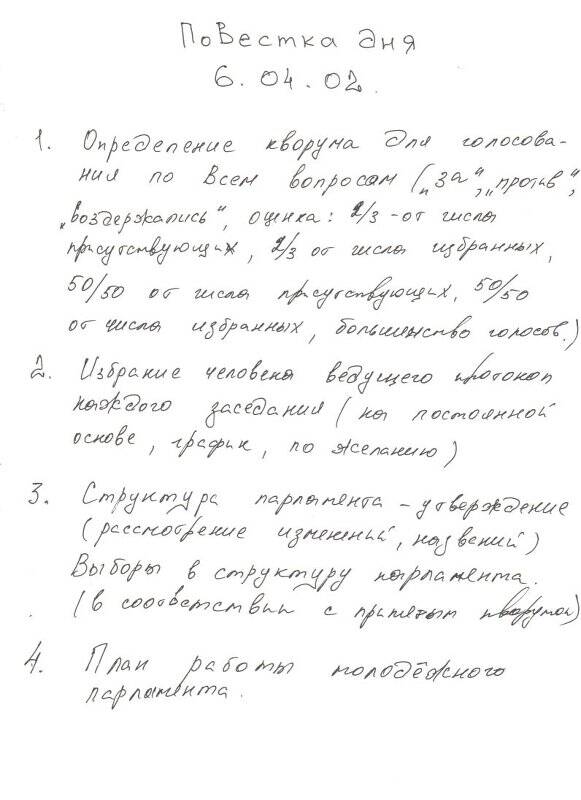 Повестка дня
6.04.02.
1. Определение кворума для голосова-
ния по всем вопросам („за“, „против“,
„воздержались“, оценка: 2/3 - от числа
присутствующих, 2/3 от числа избранных,
50/50 от числа присутствующих, 50/50
от числа избранных, большинство голосов.)
2. Избрание человека ведущего протокол
каждого заседания (на постоянной
основе, график, по желанию)
3. Структура парламента - утверждение
(рассмотрение изменений, названий)
Выборы в структуру парламента.
(в соответствии с принятым кворумом)
4. План работы молодёжного
парламента.